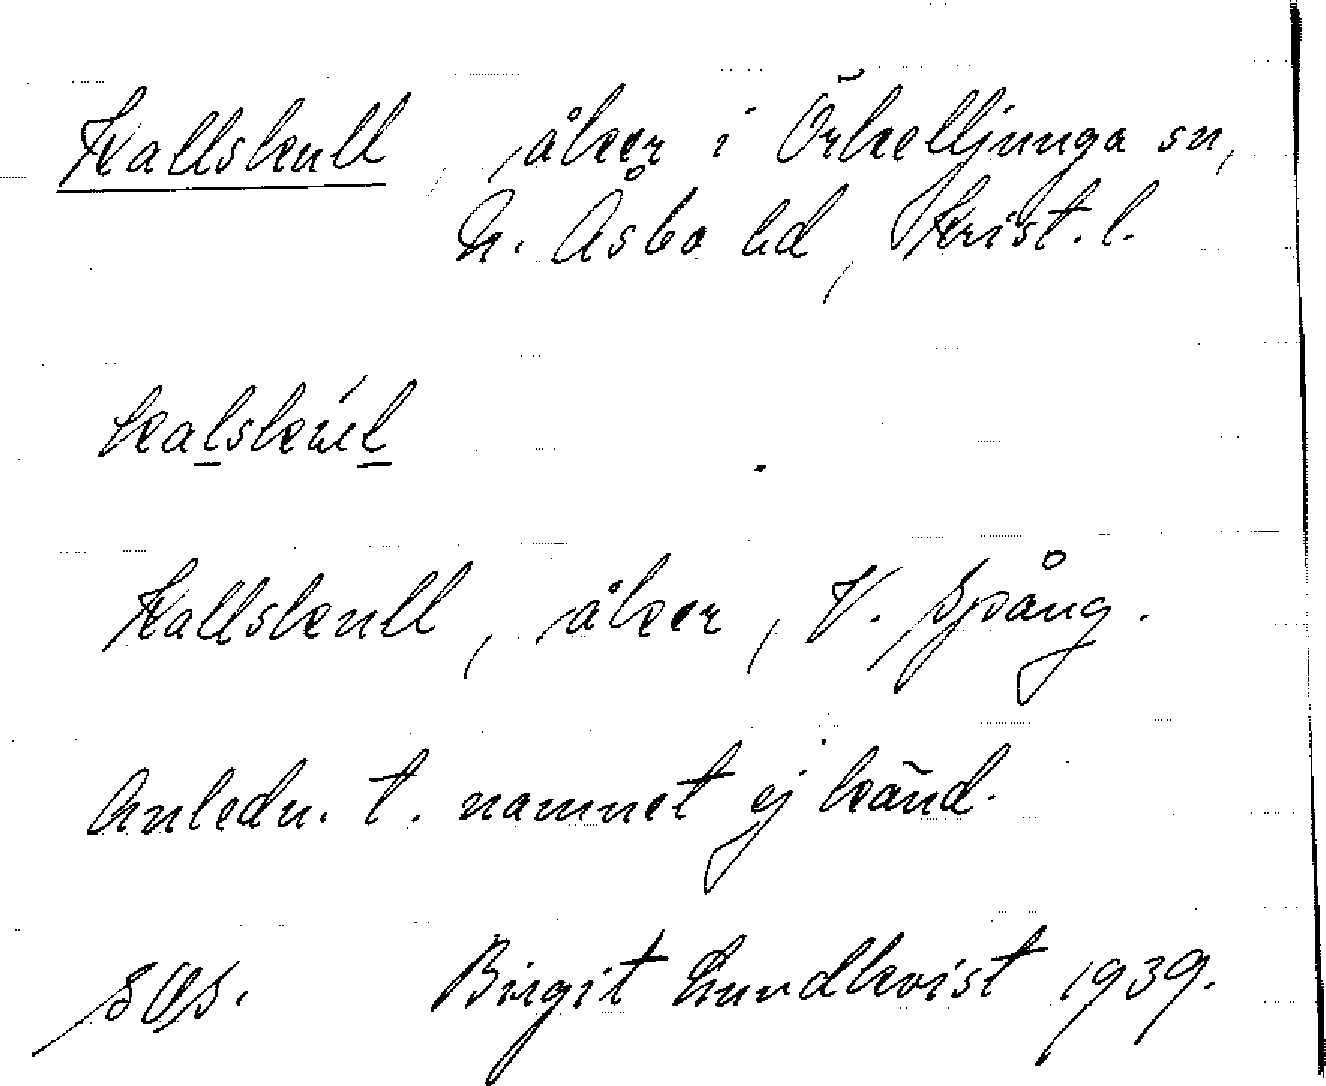 Kallskull, åker i Örkelljunga sn,
N. Åsbo hd, Krist. l.
kalskúl
Kallskull, åker, V. Spång.
Anledn. t. namnet ej känd.
Birgit Lundkvist 1939.